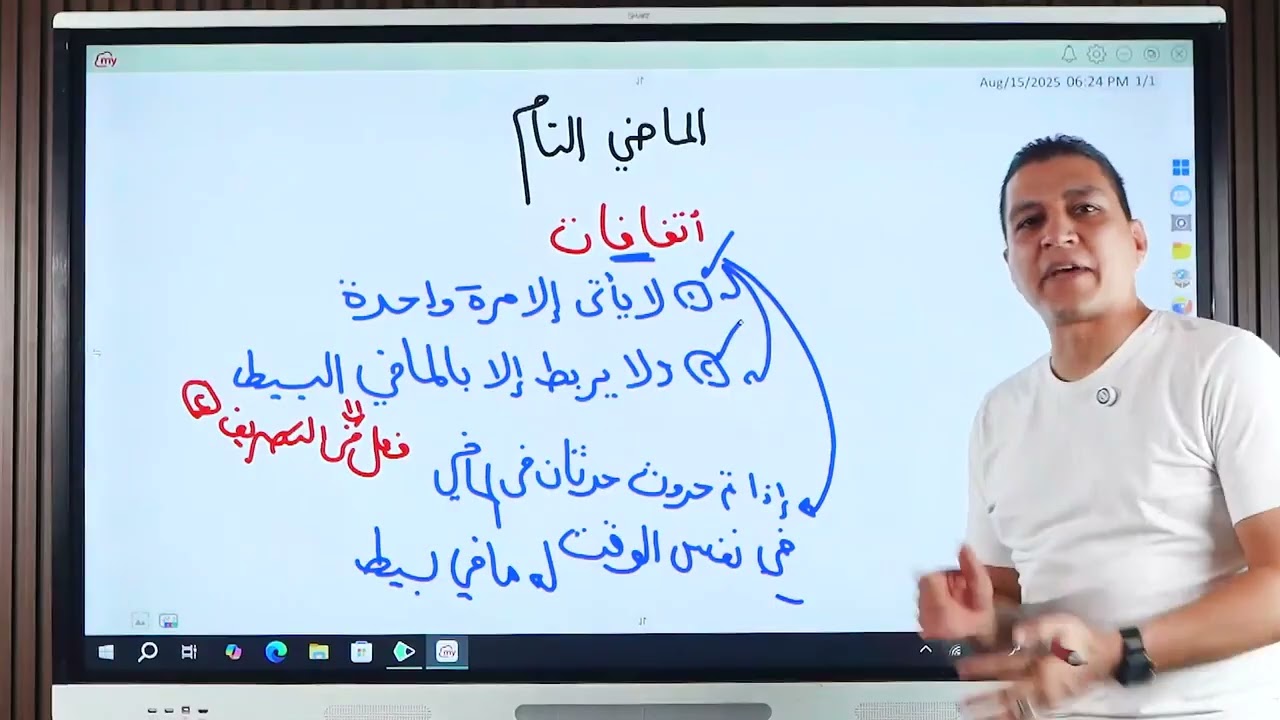 SMART
my
Aug/15/2025 06:24 PM 1/1
الماضي التام
أتفاقات
① لا يأتى إلا مرة واحدة
② ولا يربط إلا بالماضي البسيط
فعل فى التصريف ②
إذا تم حدوث حدثان فى الماضي
في نفس الوقت له ماضي بسيط
my